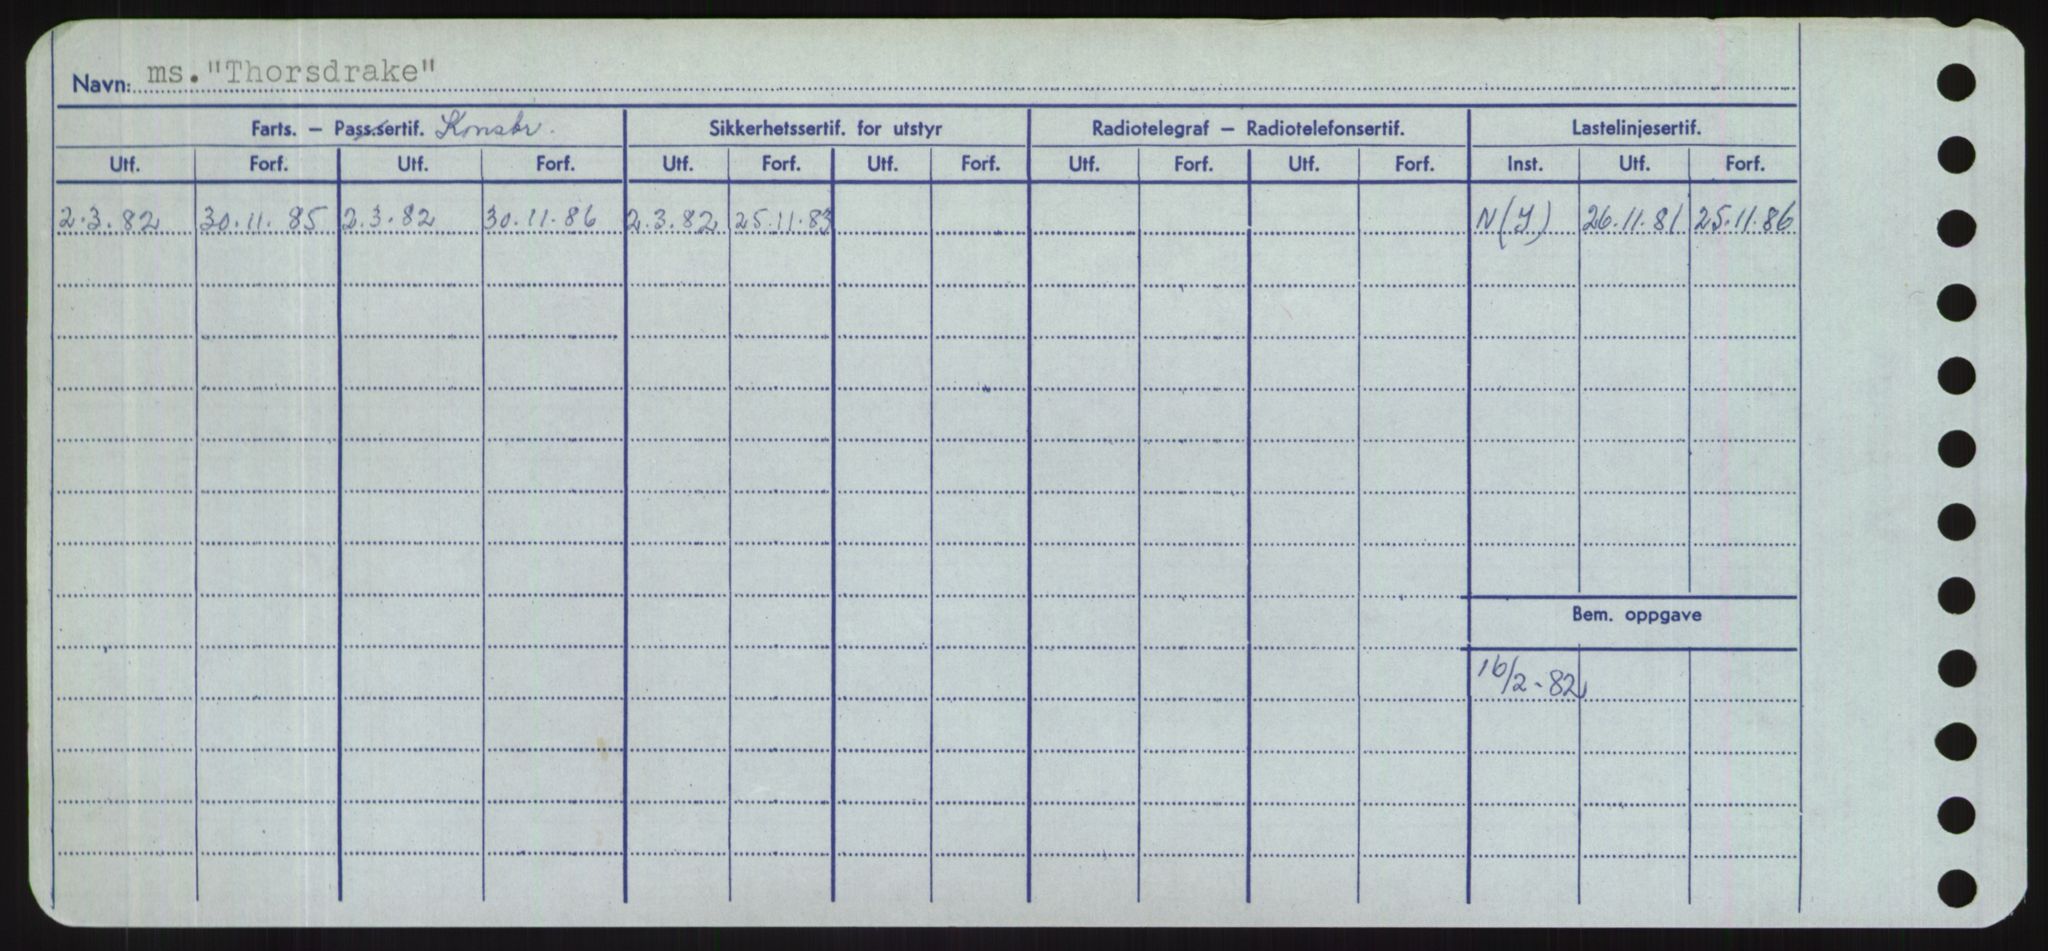 Navn: ms. "Thorsdrake"
Farts. – Pass.sertif. Konstr. Sikkerhetssertif. for utstyr Radiotelegraf – Radiotelefonsertif. Lastelinjesertif.
Utf. Forf. Utf. Forf. Utf. Forf. Utf. Forf. Utf. Forf. Utf. Forf. Inst. Utf. Forf.
2.3.82 30.11.85 2.3.82 30.11.86 2.3.82 25.11.83 N(I.) 26.11.81 25.11.86
Bem. oppgave
16/2-82